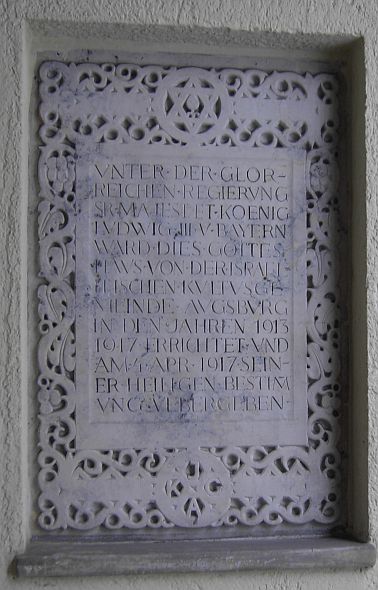 VNTER·DER·GLOR-
REICHEN·REGIERVNG
SR·MAJESTET·KOENIG
LVDWIG·III·V·BAYERN
WARD·DIES·GOTTES
HAVS·VON·DER·ISRAEL
ITISCHEN·KVLTVSGE
MEINDE·AVGSBVRG
IN·DEN·JAHREN·1913
1917·ERRICHTET·VND
AM·4·APR·1917·SEIN-
ER·HEILIGEN·BESTIM
VNG·VEBERGEBEN-
I
K G
A